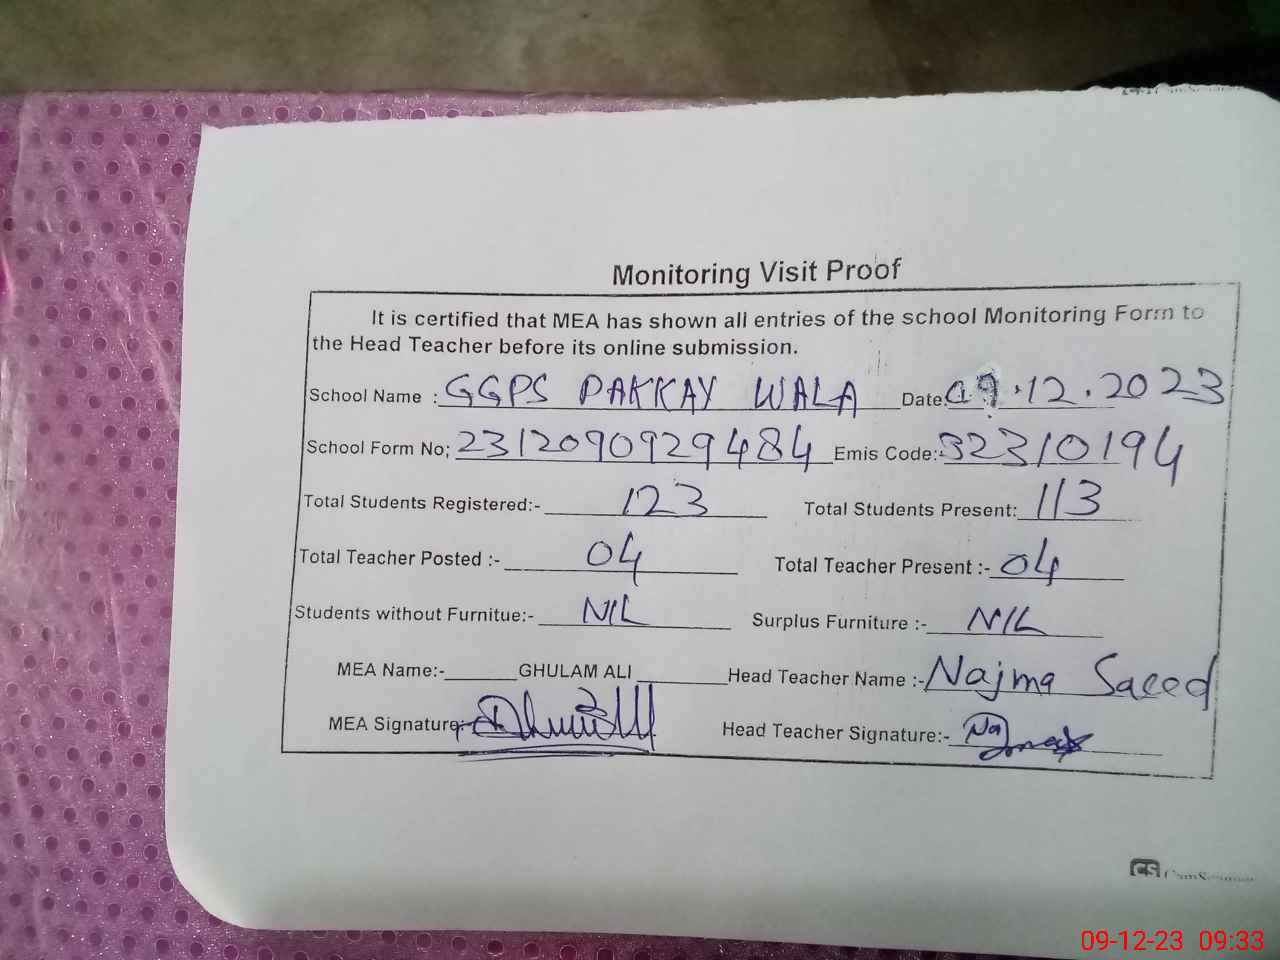 Monitoring Visit Proof
It is certified that MEA has shown all entries of the school Monitoring Form to
the Head Teacher before its online submission.
School Name : GGPS PAKKAY WALA Date: 09.12.2023
School Form No; 2312090929484 Emis Code:- 32310194
Total Students Registered:- 123 Total Students Present: 113
Total Teacher Posted :- 04 Total Teacher Present :- 04
Students without Furnitue:- NIL Surplus Furniture :- NIL
MEA Name:- GHULAM ALI Head Teacher Name :- Najma Saeed
MEA Signature:- Head Teacher Signature:-
CS CamScanner
09-12-23 09:33